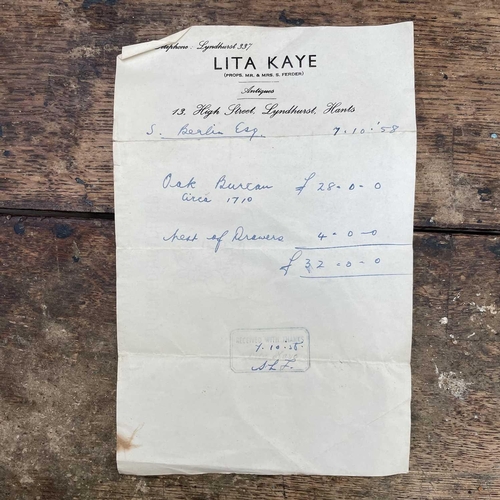 Lyndhurst 337
LITA KAYE
(PROPS. MR. & MRS. S. FERDER)
Antiques
13. High Street, Lyndhurst, Hants
S. Berlin Esq. 7.10.'58
Oak Bureau £ 28-0-0
Circa 1710
Nest of Drawers 4-0-0
£ 32-0-0
7.10.58